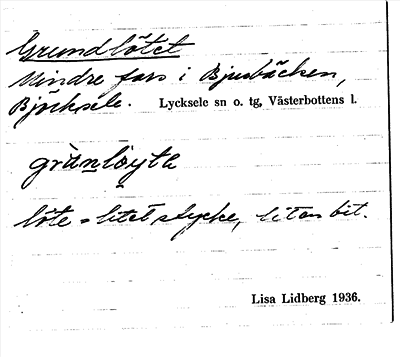 Grundlötet
Mindre fors i Bjurbäcken,
Björksele. Lycksele sn o. tg, Västerbottens l.
grùn̲lo̲yte
löte = litet stycke, liten bit.
Lisa Lidberg 1936.